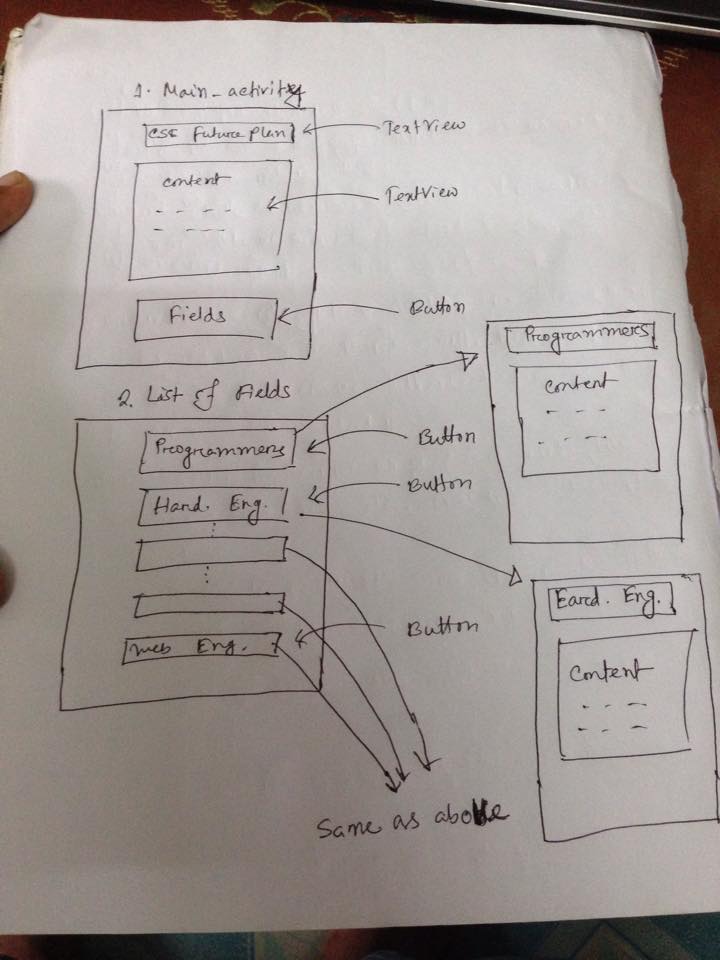 1. Main_activity
CSE Future Plan
TextView
content
TextView
Fields
Button
2. List of Fields
Programmers
Button
Hard. Eng.
Button
Web Eng.
Button
Programmers
content
Eard. Eng.
Content
Same as above